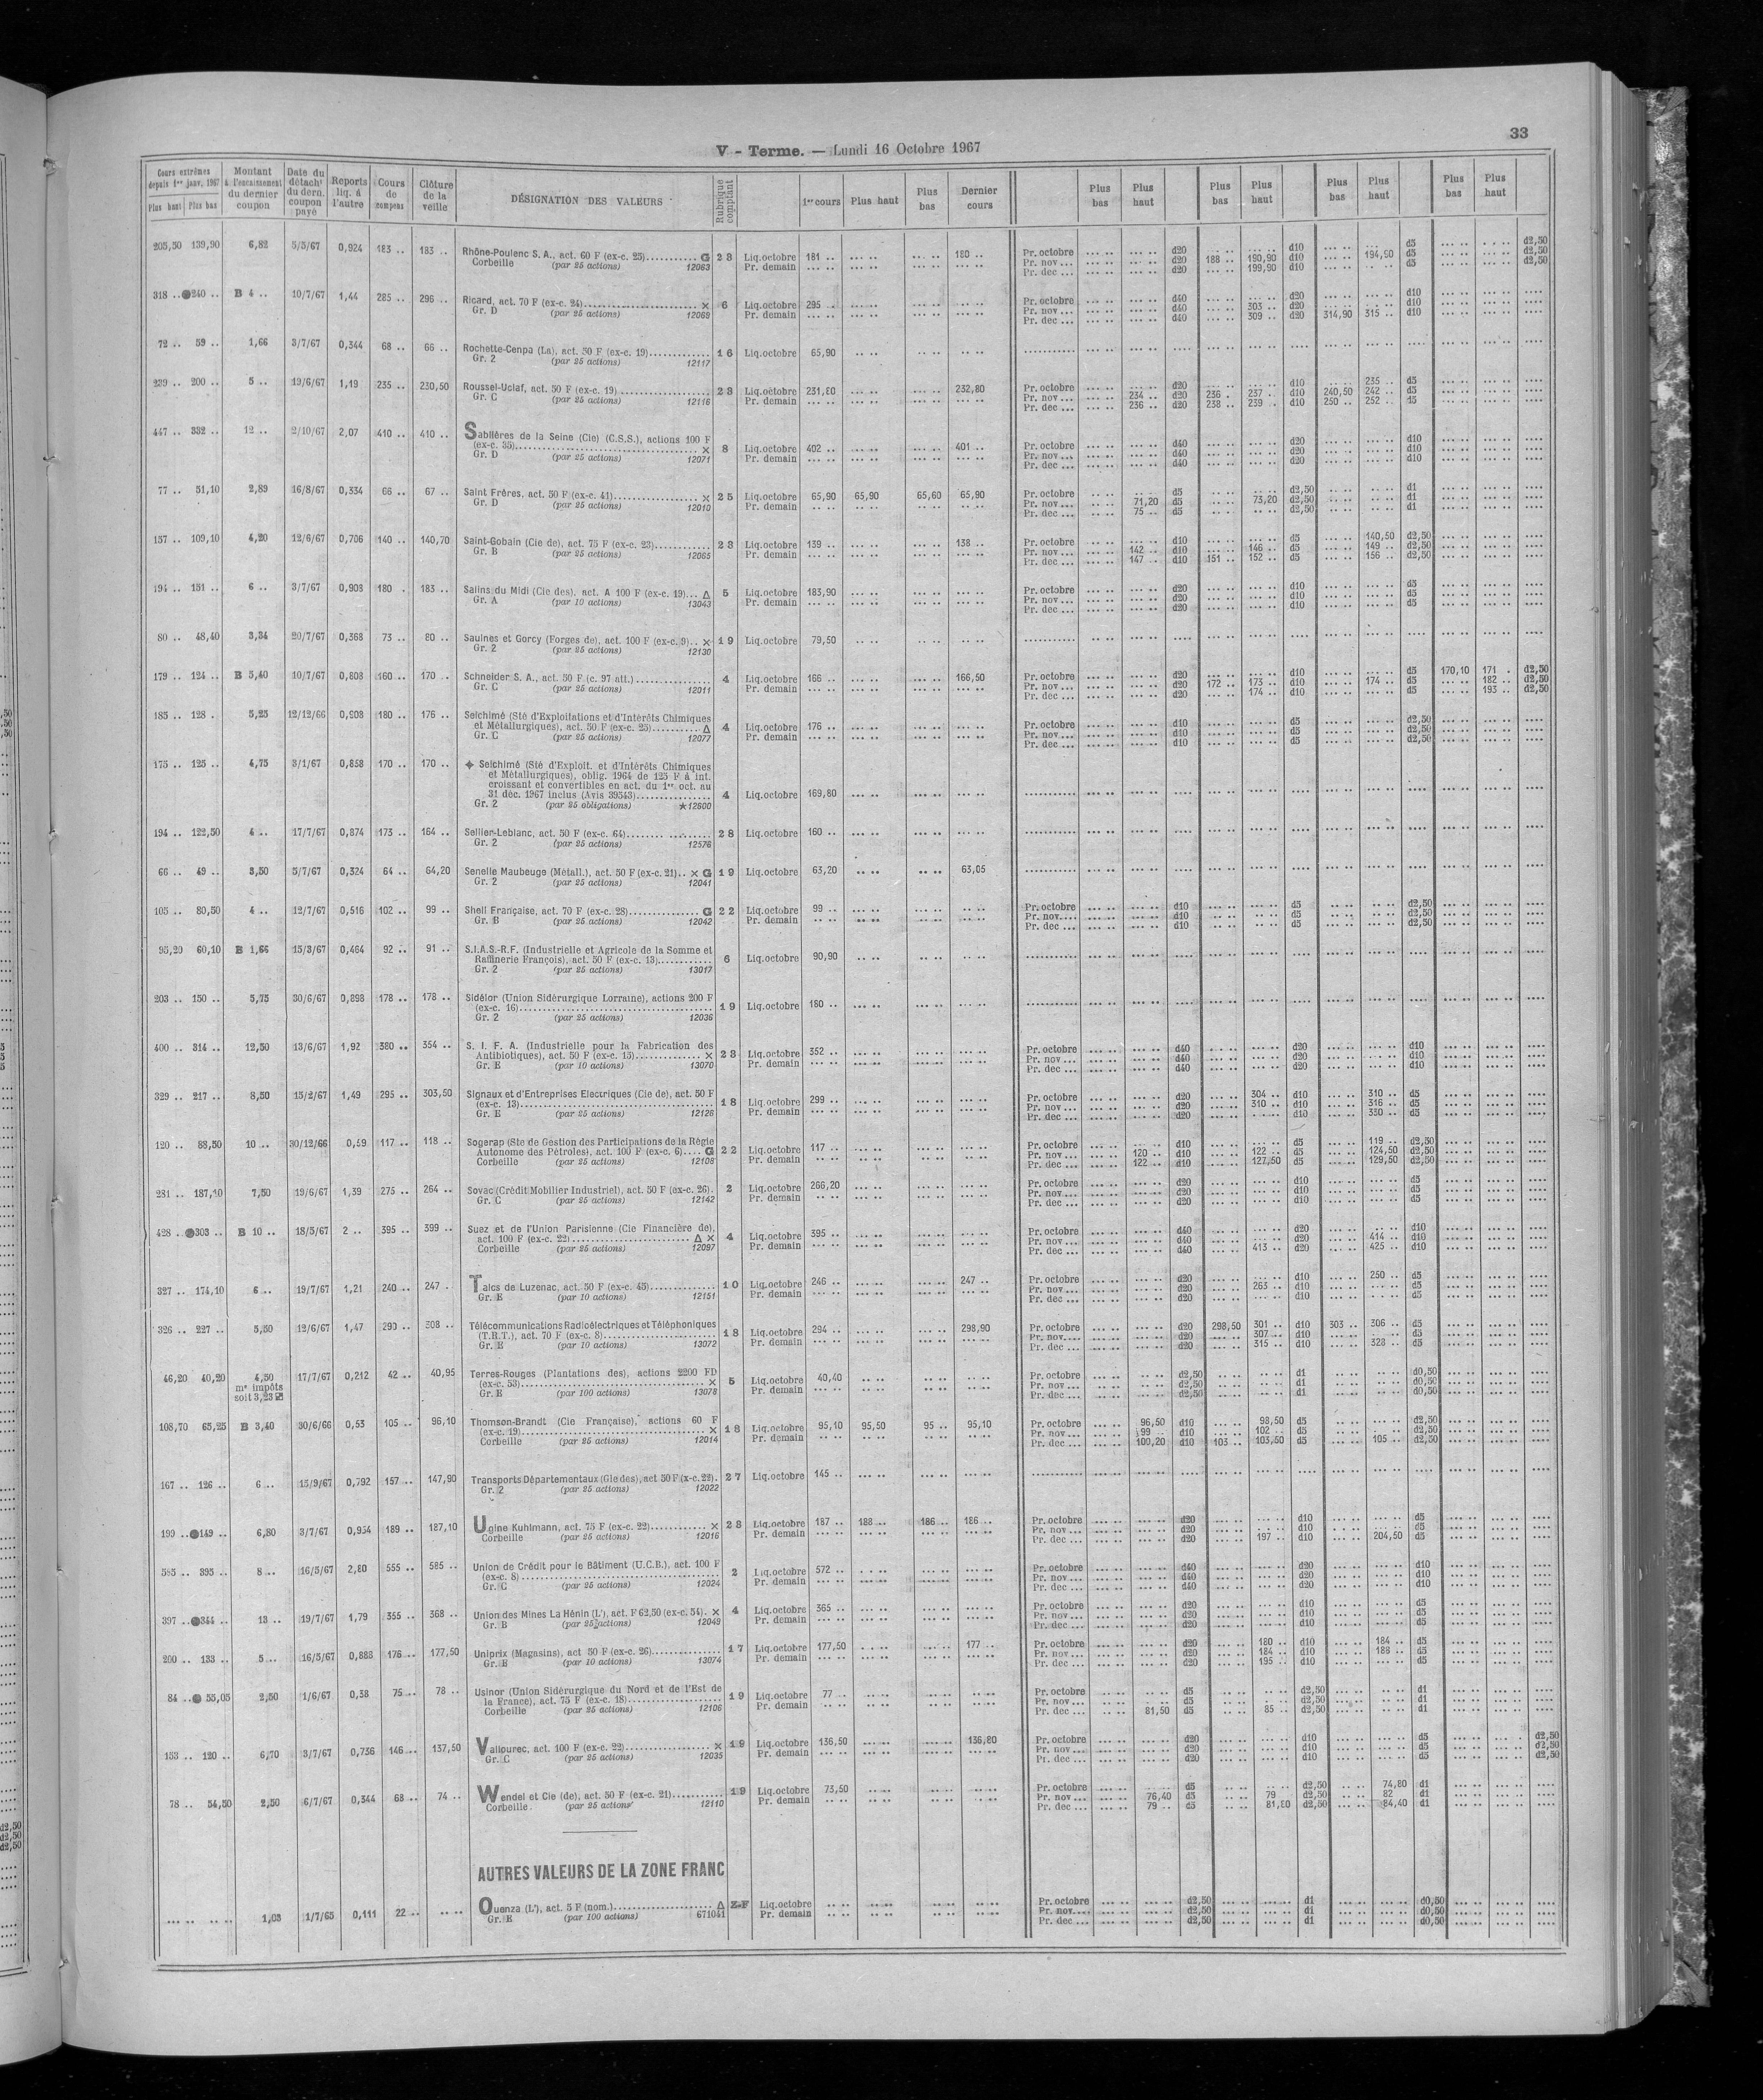 33
V - Terme. — Lundi 16 Octobre 1967
Cours extrêmes depuis 1er janv. 1967 Plus haut Plus bas
Montant à l'encaissement du dernier coupon
Date du détacht du dern. coupon payé
Reports liq. à l'autre
Cours de compens
Clôture de la veille
DÉSIGNATION DES VALEURS
Rubrique comptant
1er cours Plus haut Plus bas Dernier cours
Plus bas Plus haut Plus bas Plus haut Plus bas Plus haut Plus bas Plus haut
205,50 139,90 6,82 5/5/67 0,924 183 .. 183 .. Rhône-Poulenc S. A., act. 60 F (ex-c. 25)........... G 23 Liq.octobre 181 .. 180 .. Pr. octobre d20 d10 d5 d2,50
Corbeille (par 25 actions) 12063 Pr. demain Pr. nov ... d20 188 .. 190,90 d10 194,50 d5 d2,50
Pr. dec ... d20 199,90 d10 d5 d2,50
318 .. 240 .. B 4 .. 10/7/67 1,44 285 .. 296 .. Ricard, act. 70 F (ex-c. 24)........... × 6 Liq.octobre 295 .. Pr. octobre d40 d20 d10
Gr. D (par 25 actions) 12069 Pr. demain Pr. nov ... d40 303 .. d20 d10
Pr. dec ... d40 309 .. d20 314,90 315 .. d10
72 .. 59 .. 1,66 3/7/67 0,344 68 .. 66 .. Rochette-Cenpa (La), act. 50 F (ex-c. 19)............. 16 Liq.octobre 65,90
Gr. 2 (par 25 actions) 12117
239 .. 200 .. 5 .. 19/6/67 1,19 235 .. 230,50 Roussel-Uclaf, act. 50 F (ex-c. 19)........... 23 Liq.octobre 231,80 232,80 Pr. octobre d20 d10 235 .. d5
Gr. C (par 25 actions) 12116 Pr. demain Pr. nov ... 234 .. d20 236 . 237 .. d10 240,50 242 .. d5
Pr. dec ... 236 .. d20 238 .. 239 .. d10 250 .. 252 .. d5
447 .. 332 .. 12 .. 2/10/67 2,07 410 .. 410 .. Sablières de la Seine (Cie) (C.S.S.), actions 100 F
(ex-c. 35)........... × 8 Liq.octobre 402 .. 401 .. Pr. octobre d40 d20 d10
Gr. D (par 25 actions) 12071 Pr. demain Pr. nov ... d40 d20 d10
Pr. dec ... d40 d20 d10
77 .. 51,10 2,89 16/8/67 0,334 66 .. 67 .. Saint Frères, act. 50 F (ex-c. 41)........... × 25 Liq.octobre 65,90 65,90 65,60 65,90 Pr. octobre d5 d2,50 d1
Gr. D (par 25 actions) 12010 Pr. demain Pr. nov ... 71,20 d5 73,20 d2,50 d1
Pr. dec ... 75 .. d5 d2,50 d1
157 .. 109,10 4,20 12/6/67 0,706 140 .. 140,70 Saint-Gobain (Cie de), act. 75 F (ex-c. 23)............ 23 Liq.octobre 139 .. 138 .. Pr. octobre d10 d5 140,50 d2,50
Gr. B (par 25 actions) 12065 Pr. demain Pr. nov ... 142 .. d10 146 .. d5 149 .. d2,50
Pr. dec ... 147 .. d10 151 .. 152 .. d5 156 .. d2,50
194 .. 151 .. 6 .. 3/7/67 0,908 180 . 183 .. Salins du Midi (Cie des), act. A 100 F (ex-c. 19)... Δ 5 Liq.octobre 183,90 Pr. octobre d20 d10 d5
Gr. A (par 10 actions) 13043 Pr. demain Pr. nov ... d20 d10 d5
Pr. dec ... d20 d10 d5
80 .. 48,40 3,34 20/7/67 0,368 73 .. 80 .. Saulnes et Gorcy (Forges de), act. 100 F (ex-c. 9).. × 19 Liq.octobre 79,50
Gr. 2 (par 25 actions) 12130
179 .. 124 .. B 5,40 10/7/67 0,808 160 .. 170 .. Schneider S. A., act. 50 F (c. 97 att.)............... 4 Liq.octobre 166 .. 166,50 Pr. octobre d20 d10 d5 170,10 171 . d2,50
Gr. C (par 25 actions) 12011 Pr. demain Pr. nov ... d20 172 .. 173 .. d10 174 .. d5 182 .. d2,50
Pr. dec ... d20 174 .. d10 d5 193 .. d2,50
185 .. 128 . 5,25 12/12/66 0,908 180 .. 176 .. Selchimé (Sté d'Exploitations et d'Intérêts Chimiques
et Métallurgiques), act. 50 F (ex-c. 25).......... Δ 4 Liq.octobre 176 .. Pr. octobre d10 d5 d2,50
Gr. C (par 25 actions) 12077 Pr. demain Pr. nov.... d10 d5 d2,50
Pr. dec ... d10 d5 d2,50
175 .. 125 .. 4,75 3/1/67 0,858 170 .. 170 .. Selchimé (Sté d'Exploit. et d'Intérêts Chimiques
et Métallurgiques), oblig. 1964 de 125 F à int.
croissant et convertibles en act. du 1er oct. au
31 déc. 1967 inclus (Avis 39543)............... 4 Liq.octobre 169,80
Gr. 2 (par 25 obligations) ★12600
194 .. 122,50 4 .. 17/7/67 0,874 173 .. 164 .. Sellier-Leblanc, act. 50 F (ex-c. 64)........ 28 Liq.octobre 160 ..
Gr. 2 (par 25 actions) 12576
66 .. 49 .. 3,50 5/7/67 0,324 64 .. 64,20 Senelle Maubeuge (Métall.), act. 50 F (ex-c. 21).. × G 19 Liq.octobre 63,20 63,05
Gr. 2 (par 25 actions) 12041
105 .. 80,50 4 .. 12/7/67 0,516 102 .. 99 .. Shell Française, act. 70 F (ex-c. 28)............... G 22 Liq.octobre 99 .. Pr. octobre d10 d5 d2,50
Gr. B (par 25 actions) 12042 Pr. demain Pr. nov.... d10 d5 d2,50
Pr. dec ... d10 d5 d2,50
95,20 60,10 B 1,66 15/3/67 0,464 92 .. 91 .. S.I.A.S.-R.F. (Industrielle et Agricole de la Somme et
Raffinerie François), act. 50 F (ex-c. 13)............ 6 Liq.octobre 90,90
Gr. 2 (par 25 actions) 13017
203 .. 150 .. 5,75 30/6/67 0,898 178 .. 178 .. Sidélor (Union Sidérurgique Lorraine), actions 200 F
(ex-c. 16)........... 19 Liq.octobre 180 ..
Gr. 2 (par 25 actions) 12036
400 .. 314 .. 12,50 13/6/67 1,92 380 .. 354 .. S. I. F. A. (Industrielle pour la Fabrication des
Antibiotiques), act. 50 F (ex-c. 15)............. × 23 Liq.octobre 352 .. Pr. octobre d40 d20 d10
Gr. E (par 10 actions) 13070 Pr. demain Pr. nov ... d40 d20 d10
Pr. dec ... d40 d20 d10
329 .. 217 .. 8,50 15/2/67 1,49 295 .. 303,50 Signaux et d'Entreprises Electriques (Cie de), act. 50 F
(ex-c. 13)........... 18 Liq.octobre 299 .. Pr. octobre d20 304 .. d10 310 .. d5
Gr. E (par 25 actions) 12126 Pr. demain Pr. nov ... d20 310 .. d10 316 .. d5
Pr. dec ... d20 d10 330 .. d5
120 .. 88,50 10 .. 30/12/66 0,59 117 .. 118 .. Sogerap (Sté de Gestion des Participations de la Régie
Autonome des Pétroles), act. 100 F (ex-c. 6).... G 22 Liq.octobre 117 .. Pr. octobre d10 d5 119 .. d2,50
Corbeille (par 25 actions) 12108 Pr. demain Pr. nov ... 120 .. d10 122 .. d5 124,50 d2,50
Pr. dec ... 122 .. d10 127,50 d5 129,50 d2,50
281 .. 187,10 7,50 19/6/67 1,39 275 .. 264 .. Sovac (Crédit Mobilier Industriel), act. 50 F (ex-c. 26). 2 Liq.octobre 266,20 Pr. octobre d20 d10 d5
Gr. C (par 25 actions) 12142 Pr. demain Pr. nov ... d20 d10 d5
Pr. dec ... d20 d10 d5
428 .. 303 .. B 10 .. 18/5/67 2 .. 395 .. 399 .. Suez et de l'Union Parisienne (Cie Financière de),
act. 100 F (ex-c. 22)........... Δ × 4 Liq.octobre 395 .. Pr. octobre d40 d20 d10
Corbeille (par 25 actions) 12097 Pr. demain Pr. nov ... d40 d20 414 .. d10
Pr. dec ... d40 413 .. d20 425 .. d10
327 .. 174,10 6 .. 19/7/67 1,21 240 .. 247 . Talcs de Luzenac, act. 50 F (ex-c. 45)............. 10 Liq.octobre 246 .. 247 .. Pr. octobre d20 d10 250 .. d5
Gr. E (par 10 actions) 12151 Pr. demain Pr. nov ... d20 263 .. d10 d5
Pr. dec ... d20 d10 d5
326 .. 227 .. 5,50 12/6/67 1,47 290 .. 308 .. Télécommunications Radioélectriques et Téléphoniques
(T.R.T.), act. 70 F (ex-c. 8)........... 18 Liq.octobre 294 .. 298,90 Pr. octobre d20 298,50 301 .. d10 303 .. 306 .. d5
Gr. E (par 10 actions) 13072 Pr. demain Pr. nov.... d20 307 .. d10 d5
Pr. dec ... d20 315 .. d10 328 .. d5
46,20 40,20 4,50 17/7/67 0,212 42 .. 40,95 Terres-Rouges (Plantations des), actions 2200 FD
ms impôts soit 3,23 (ex-c. 53)........... × 5 Liq.octobre 40,40 Pr. octobre d2,50 d1 d0,50
Gr. E (par 100 actions) 13078 Pr. demain Pr. nov ... d2,50 d1 d0,50
Pr. dec ... d2,50 d1 d0,50
108,70 65,25 B 3,40 30/6/66 0,53 105 .. 96,10 Thomson-Brandt (Cie Française), actions 60 F
(ex-c. 19)........... × 18 Liq.octobre 95,10 95,50 95 .. 95,10 Pr. octobre 96,50 d10 98,50 d5 d2,50
Corbeille (par 25 actions) 12014 Pr. demain Pr. nov... 99 .. d10 102 .. d5 d2,50
Pr. dec ... 100,20 d10 103 .. 103,50 d5 105 .. d2,50
167 .. 126 .. 6 .. 15/9/67 0,792 157 .. 147,90 Transports Départementaux (Gle des), act 50 F (x-c. 22). 27 Liq.octobre 145 ..
Gr. 2 (par 25 actions) 12022
199 .. 149 .. 6,80 3/7/67 0,954 189 .. 187,10 Ugine Kuhlmann, act. 75 F (ex-c. 22)............ × 28 Liq.octobre 187 .. 188 .. 186 .. 186 .. Pr. octobre d20 d10 d5
Corbeille (par 25 actions) 12016 Pr. demain Pr. nov ... d20 d10 d5
Pr. dec ... d20 197 .. d10 204,50 d5
585 .. 395 .. 8 .. 16/5/67 2,80 555 .. 585 .. Union de Crédit pour le Bâtiment (U.C.B.), act. 100 F
(ex-c. 8)........... 2 Liq.octobre 572 .. Pr. octobre d40 d20 d10
Gr. C (par 25 actions) 12024 Pr. demain Pr. nov ... d40 d20 d10
Pr. dec ... d40 d20 d10
397 .. 344 .. 13 .. 19/7/67 1,79 355 .. 368 .. Union des Mines La Hénin (L'), act. F 62,50 (ex-c. 54). × 4 Liq.octobre 365 .. Pr. octobre d20 d10 d5
Gr. B (par 25 actions) 12049 Pr. demain Pr. nov ... d20 d10 d5
Pr. dec ... d20 d10 d5
200 .. 133 .. 5 .. 16/5/67 0,888 176 .. 177,50 Uniprix (Magasins), act 50 F (ex-c. 26)............. 17 Liq.octobre 177,50 177 .. Pr. octobre d20 180 .. d10 184 .. d5
Gr. E (par 10 actions) 13074 Pr. demain Pr. nov... d20 184 .. d10 188 .. d5
Pr. dec ... d20 195 .. d10 d5
84 .. 55,05 2,50 1/6/67 0,38 75 .. 78 .. Usinor (Union Sidérurgique du Nord et de l'Est de
la France), act. 75 F (ex-c. 18)........... 19 Liq.octobre 77 .. Pr. octobre d5 d2,50 d1
Corbeille (par 25 actions) 12106 Pr. demain Pr. nov ... d5 d2,50 d1
Pr. dec ... 81,50 d5 85 .. d2,50 d1
153 .. 120 .. 6,70 3/7/67 0,736 146 .. 137,50 Vallourec, act. 100 F (ex-c. 22)........... × 19 Liq.octobre 136,50 136,80 Pr. octobre d20 d10 d5 d2,50
Gr. C (par 25 actions) 12035 Pr. demain Pr. nov ... d20 d10 d5 d2,50
Pr. dec ... d20 d10 d5 d2,50
78 .. 54,50 2,50 6/7/67 0,344 68 .. 74 .. Wendel et Cie (de), act. 50 F (ex-c. 21)........... 19 Liq.octobre 73,50 Pr. octobre d5 d2,50 74,80 d1
Corbeille. (par 25 actions) 12110 Pr. demain Pr. nov ... 76,40 d5 79 d2,50 82 d1
Pr. dec ... 79 .. d5 81,80 d2,50 84,40 d1
AUTRES VALEURS DE LA ZONE FRANC
1,03 1/7/65 0,111 22 .. Ouenza (L'), act. 5 F (nom.)........... Δ Z-F Liq.octobre Pr. octobre d2,50 d1 d0,50
Gr. E (par 100 actions) 671041 Pr. demain Pr. nov.... d2,50 d1 d0,50
Pr. dec ... d2,50 d1 d0,50